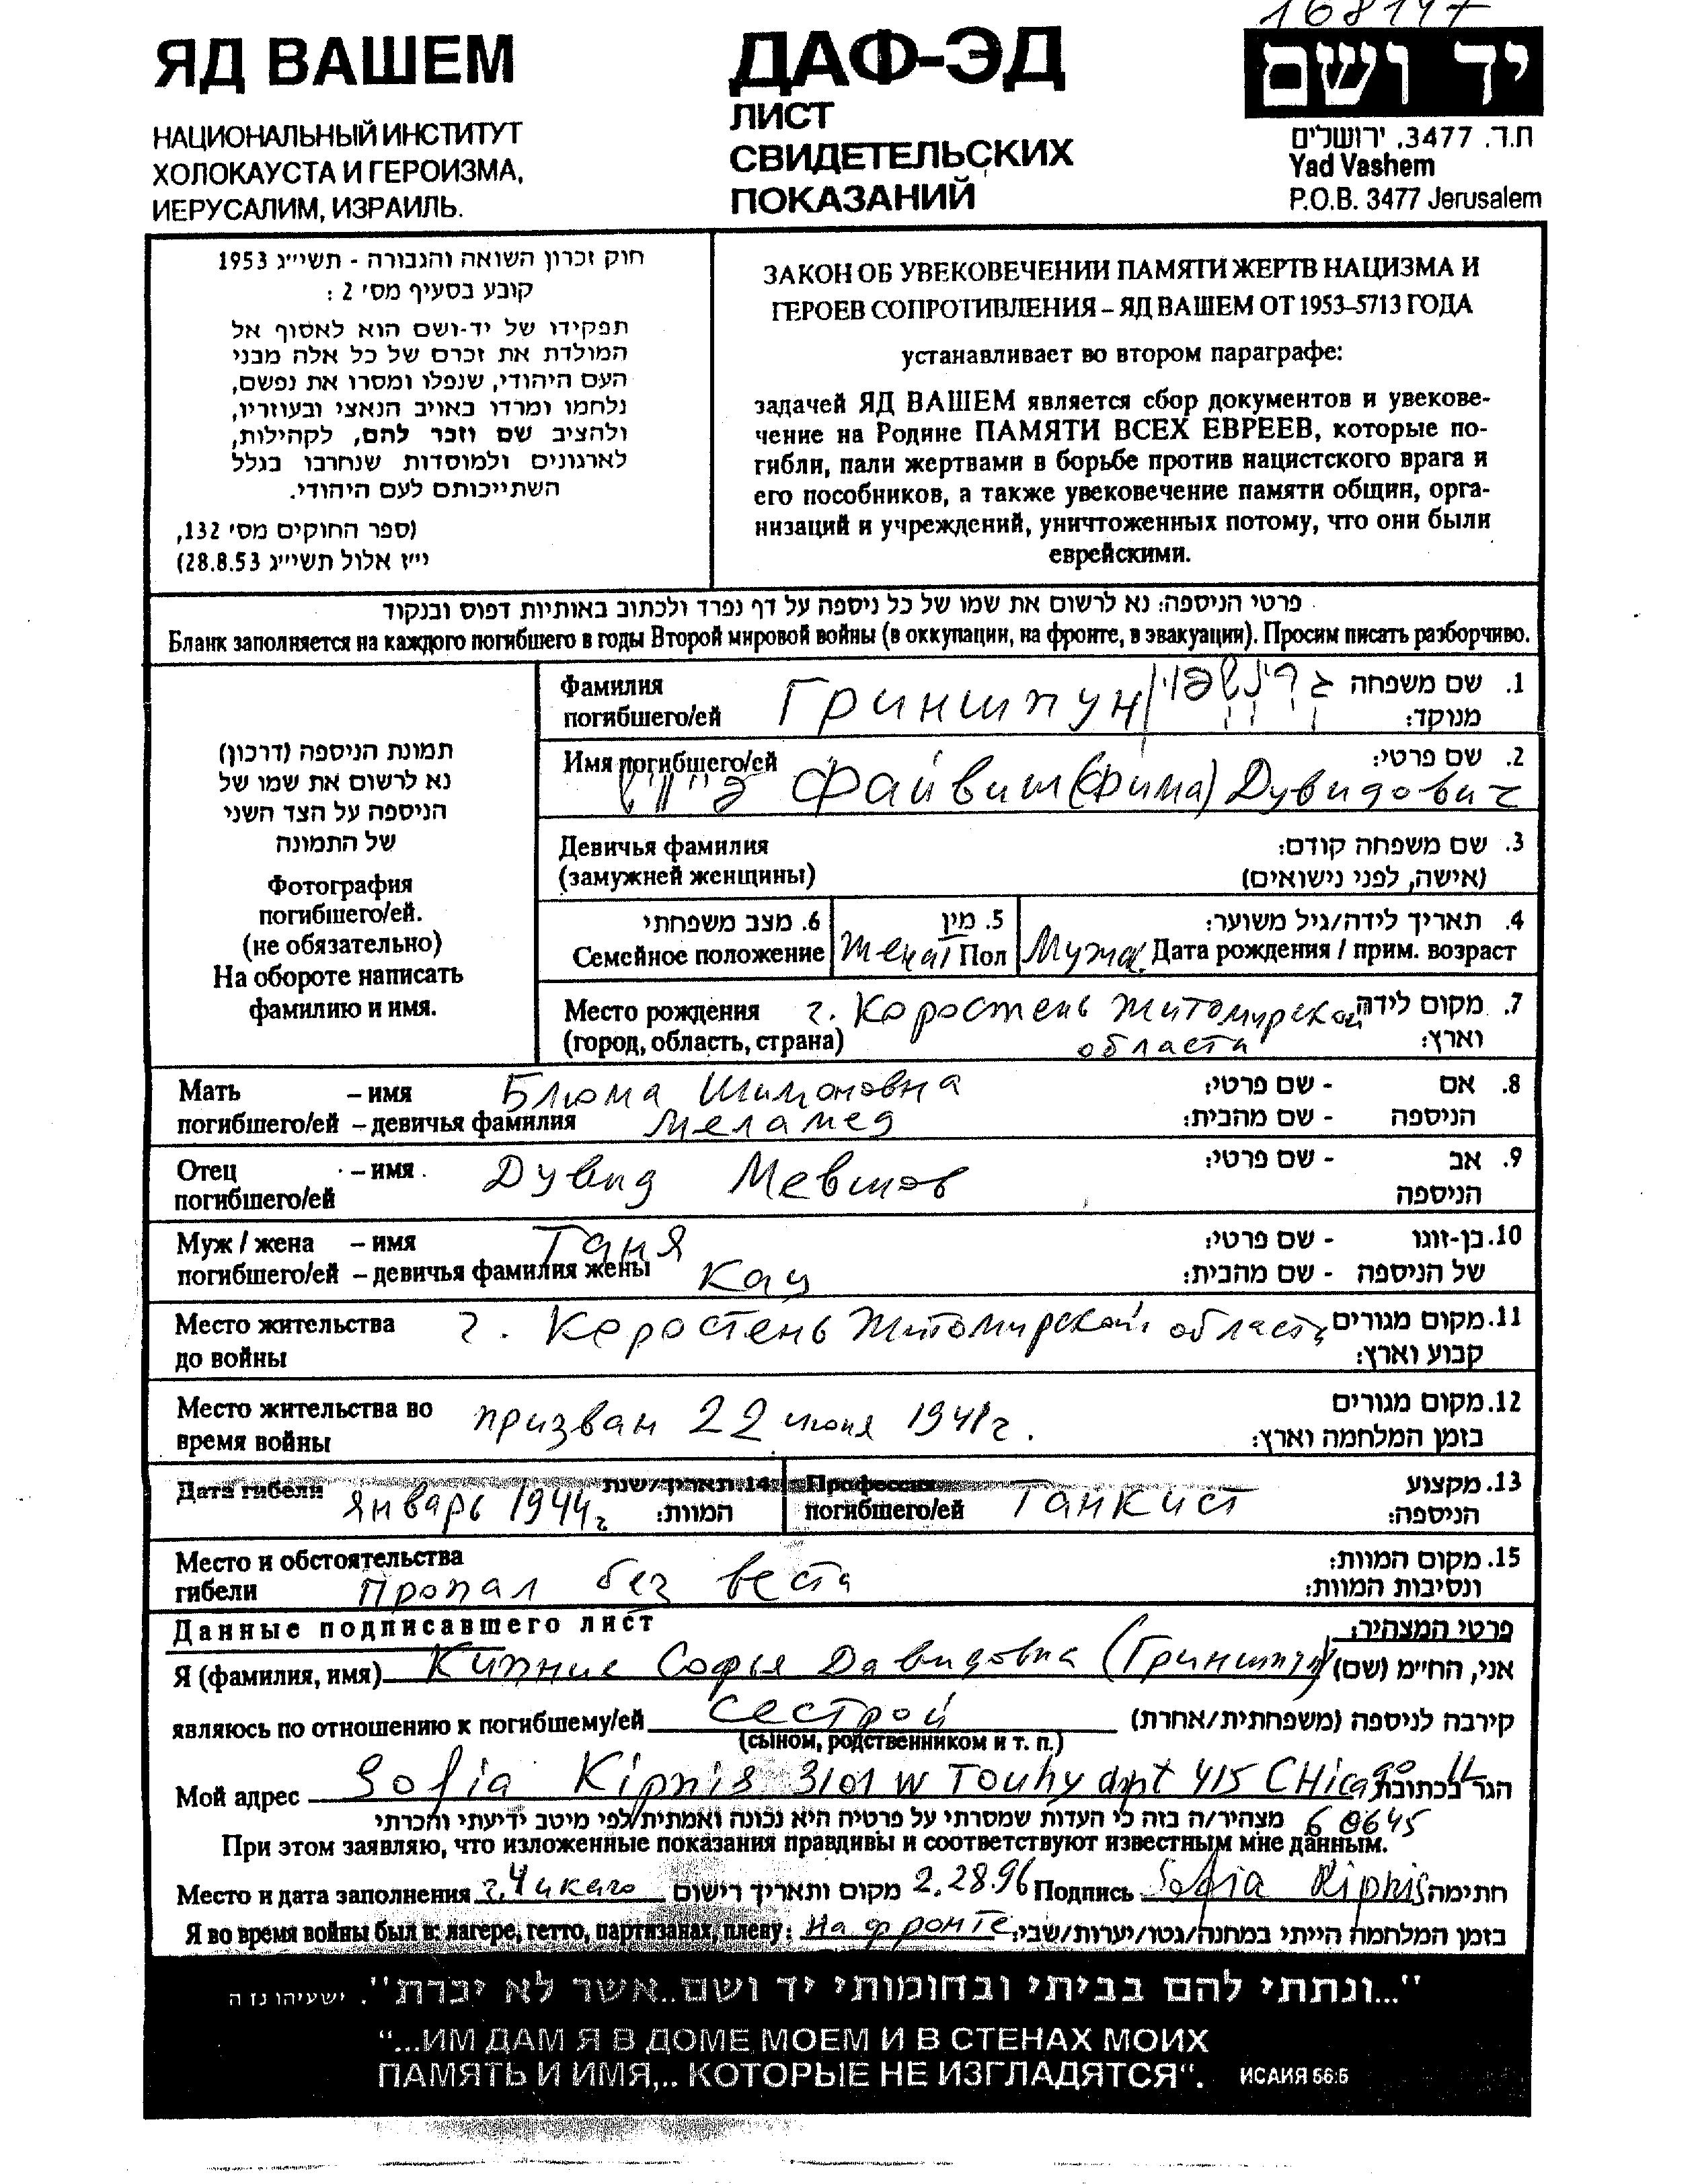 168147
ЯД ВАШЕМ
НАЦИОНАЛЬНЫЙ ИНСТИТУТ
ХОЛОКАУСТА И ГЕРОИЗМА,
ИЕРУСАЛИМ, ИЗРАИЛЬ.
ДАФ-ЭД
ЛИСТ
СВИДЕТЕЛЬСКИХ
ПОКАЗАНИЙ
יד ושם
ת.ד. 3477, ירושלים
Yad Vashem
P.O.B. 3477 Jerusalem
חוק זכרון השואה והגבורה - תשי״ג 1953
קובע בסעיף מס׳ 2 :
תפקידו של יד-ושם הוא לאסוף אל
המולדת את זכרם של כל אלה מבני
העם היהודי, שנפלו ומסרו את נפשם,
נלחמו ומרדו באויב הנאצי ובעוזריו,
ולהציב שם וזכר להם, לקהילות,
לארגונים ולמוסדות שנחרבו בגלל
השתייכותם לעם היהודי.
(ספר החוקים מס׳ 132,
י״ז אלול תשי״ג 28.8.53)
ЗАКОН ОБ УВЕКОВЕЧЕНИИ ПАМЯТИ ЖЕРТВ НАЦИЗМА И
ГЕРОЕВ СОПРОТИВЛЕНИЯ – ЯД ВАШЕМ ОТ 1953–5713 ГОДА
устанавливает во втором параграфе:
задачей ЯД ВАШЕМ является сбор документов и увекове-
чение на Родине ПАМЯТИ ВСЕХ ЕВРЕЕВ, которые по-
гибли, пали жертвами в борьбе против нацистского врага и
его пособников, а также увековечение памяти общин, орга-
низаций и учреждений, уничтоженных потому, что они были
еврейскими.
פרטי הניספה: נא לרשום את שמו של כל ניספה על דף נפרד ולכתוב באותיות דפוס ובנקוד
Бланк заполняется на каждого погибшего в годы Второй мировой войны (в оккупации, на фронте, в эвакуации). Просим писать разборчиво.
תמונת הניספה (דרכון)
נא לרשום את שמו של
הניספה על הצד השני
של התמונה
Фотография
погибшего/ей.
(не обязательно)
На обороте написать
фамилию и имя.
Фамилия 1. שם משפחה
погибшего/ей Гриншпун גרינשפון מנוקד:
Имя погибшего/ей 2. שם פרטי:
פייוויש Файвиш (Фима) Дувидович
Девичья фамилия 3. שם משפחה קודם:
(замужней женщины) (אישה, לפני נישואים)
6. מצב משפחתי 5. מין 4. תאריך לידה/גיל משוער:
Семейное положение женат Пол Мужс. Дата рождения / прим. возраст
Место рождения г. Коростень Житомирской 7. מקום לידה
(город, область, страна) области וארץ:
Мать – имя Блюма Шимоновна 8. אם - שם פרטי:
погибшего/ей – девичья фамилия Меламед הניספה - שם מהבית:
Отец – имя Дувид Мевшов 9. אב - שם פרטי:
погибшего/ей הניספה
Муж / жена – имя Таня 10. בן-זוגו - שם פרטי:
погибшего/ей – девичья фамилия жены Кац של הניספה - שם מהבית:
Место жительства г. Коростень Житомирской области 11. מקום מגורים
до войны קבוע וארץ:
Место жительства во призван 22 июня 1941г. 12. מקום מגורים
время войны בזמן המלחמה וארץ:
Дата гибели январь 1944г 14. תאריך/שנת
המוות:
Профессия 13. מקצוע
погибшего/ей Танкист הניספה:
Место и обстоятельства 15. מקום המוות:
гибели Пропал без веста ונסיבות המוות:
Данные подписавшего лист פרטי המצהיר:
Я (фамилия, имя) Кипнис Софья Давидовна (Гриншпун) אני, החי״מ (שם)
являюсь по отношению к погибшему/ей сестрой קירבה לניספה (משפחתית/אחרת)
(сыном, родственником и т. п.)
Мой адрес Sofia Kipnis 3101 W Touhy apt 415 CHicago IL הגר בכתובת
מצהיר/ה בזה כי העדות שמסרתי על פרטיה היא נכונה ואמתית לפי מיטב ידיעתי והכרתי 60645
При этом заявляю, что изложенные показания правдивы и соответствуют известным мне данным.
Место и дата заполнения г. Чикаго מקום ותאריך רישום 2.28.96 Подпись Sofia Kipnis חתימה
Я во время войны был в: лагере, гетто, партизанах, плену: На фронте בזמן המלחמה הייתי במחנה/גטו/יערות/שבי:
"...ונתתי להם בביתי ובחומותי יד ושם..אשר לא יכרת". ישעיהו נו ה
“...ИМ ДАМ Я В ДОМЕ МОЕМ И В СТЕНАХ МОИХ
ПАМЯТЬ И ИМЯ,.. КОТОРЫЕ НЕ ИЗГЛАДЯТСЯ“. ИСАИЯ 56:5